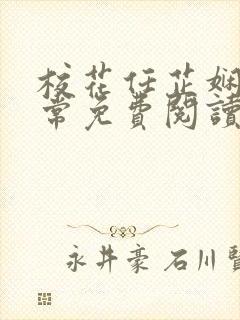 校花任芷娴
常免費閱讀
永井豪 石川賢